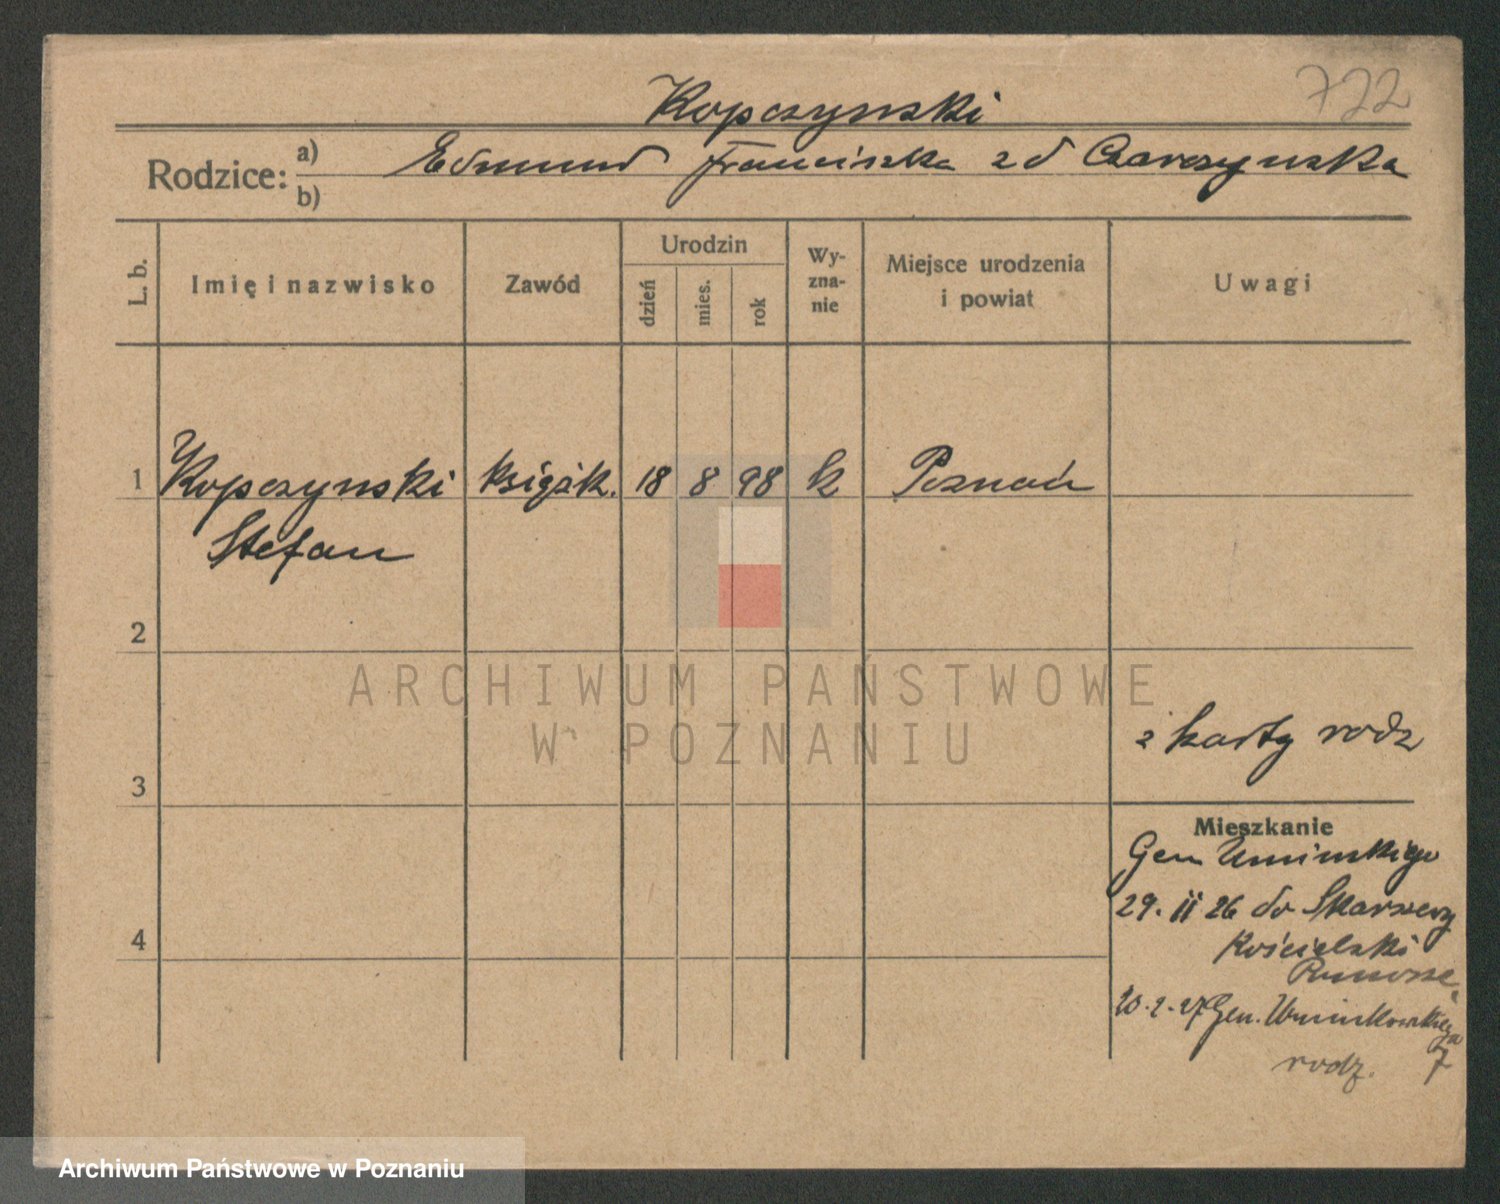 722
Kopczynski
Rodzice: a) Edmund Franciszka z d Czarczynska
b)
L. b. Imię i nazwisko Zawód Urodzin dzień mies. rok Wy-zna-nie Miejsce urodzenia i powiat Uwagi
1 Kopczynski książk. 18 8 98 k Poznań
Stefan
2
ARCHIWUM PAŃSTWOWE
W POZNANIU
z karty rodz
3
Mieszkanie
Gen Uminskiego
29. 11 26 do Skarszewy
4
Kościelski
Pomorze
10. 2. 27 Gen.
7
rodz.
Archiwum Państwowe w Poznaniu